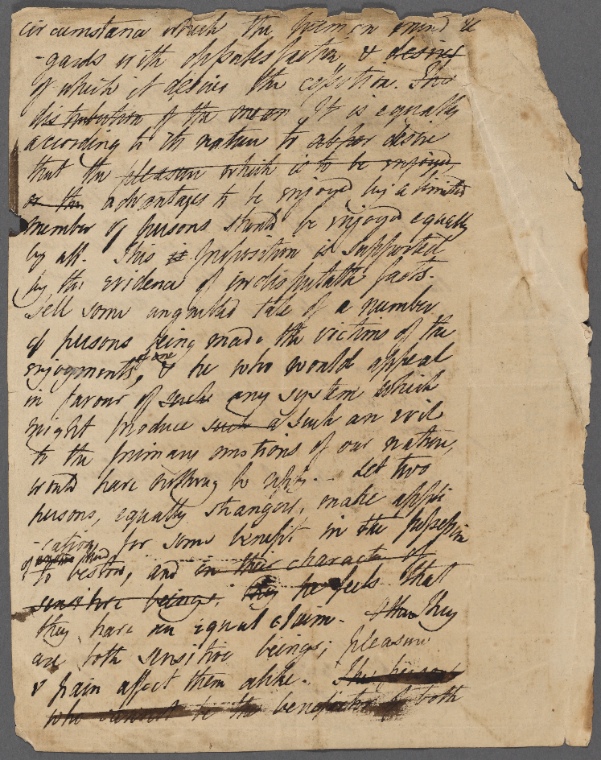 circumstance which the human mind re
-gards with dissatisfaction & desires
of which it desires the cessation. The
distribution of the means It is equally
according to its nature to desire
that the pleasure which is to be enjoyed
or the advantages to be enjoyed by a limited
number of persons should be enjoyed equally
by all. This is proposition is supported
by the evidence of indisputable facts.
Tell some ungarbled tale of a number
of persons being made the victims of the
enjoyments of one, & he who would appeal
in favour of such any system which
might produce such a such an evil
to the primary emotions of our nature,
would have nothing to reply. - Let two
persons, equally strangers, make appli
-cation for some benefit in the possession
of
to bestow, and in their character of
sensitive beings, they he feels that
they have an equal claim. They
are both sensitive beings; pleasure
& pain affect them alike. The person
who cannot be the benefactor of both